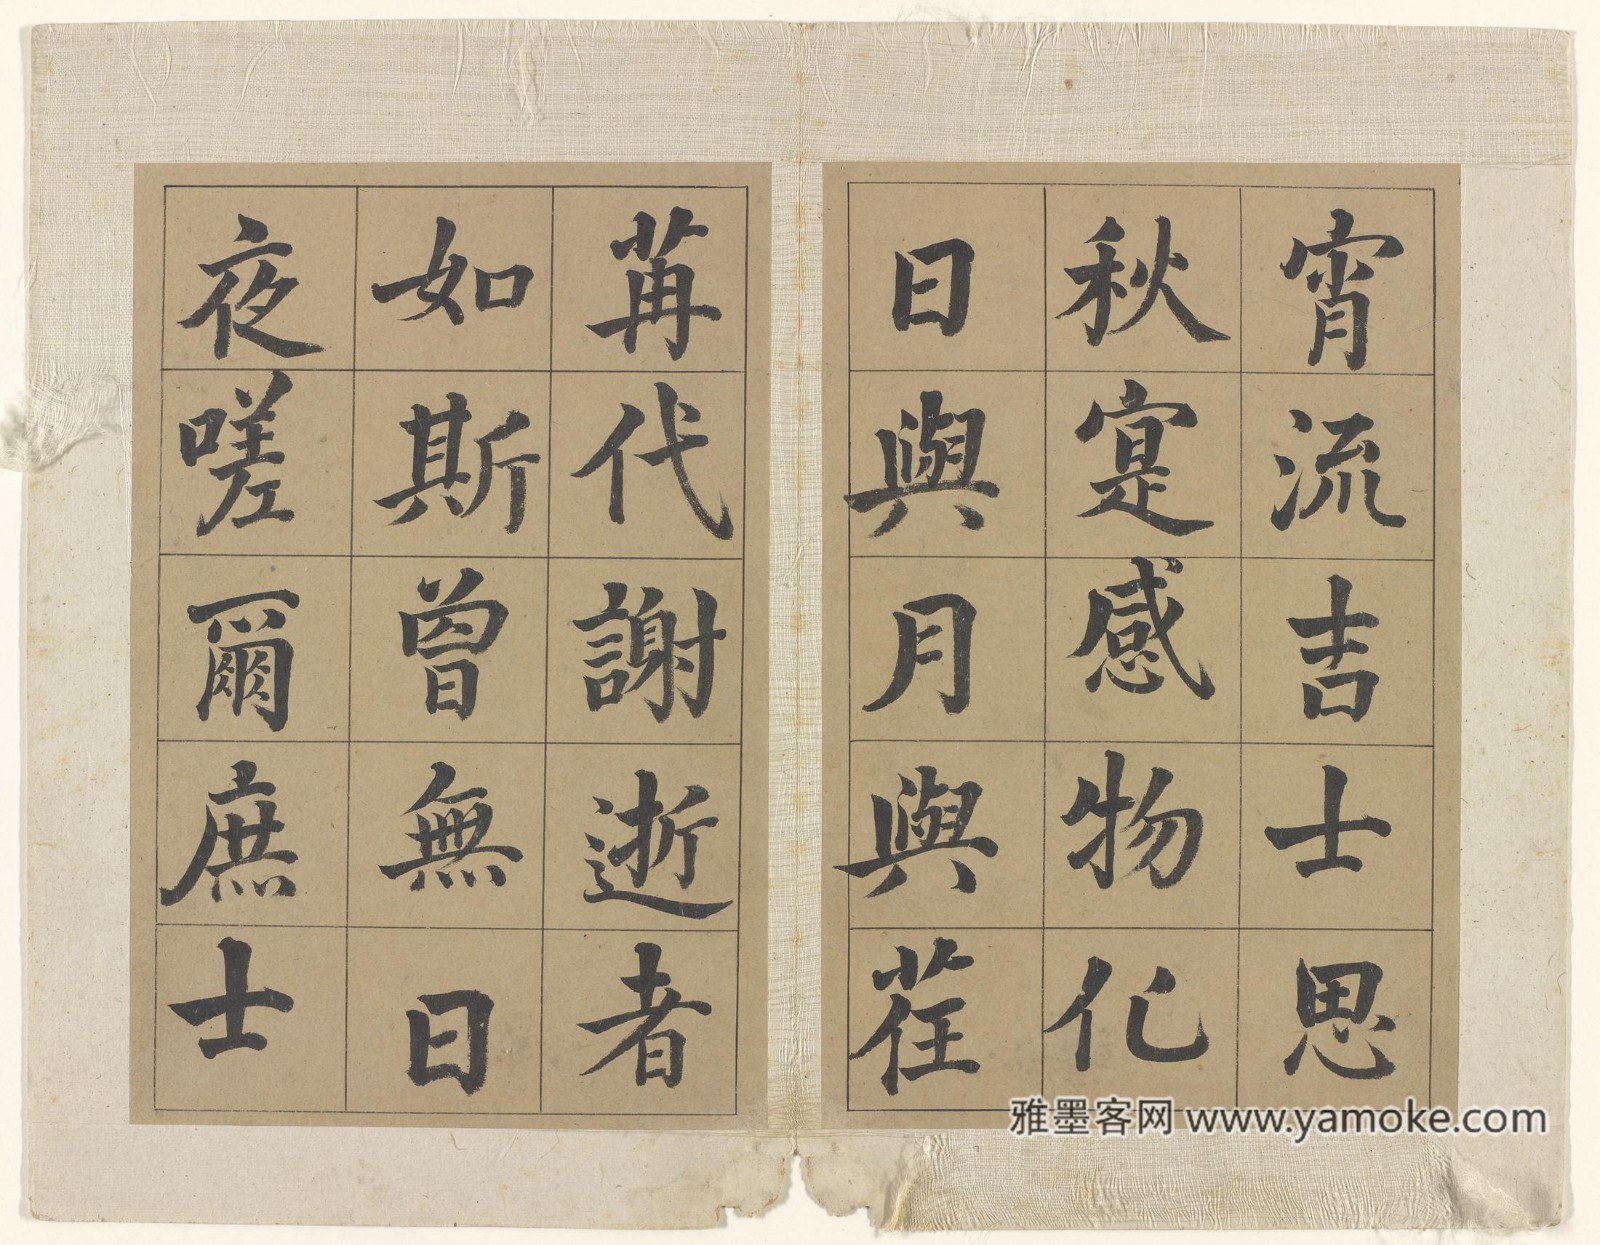 宵流吉士思
秋寔感物化
日與月與荏
苒代謝逝者
如斯曾無日
夜嗟爾庶士
雅墨客网 www.yamoke.com